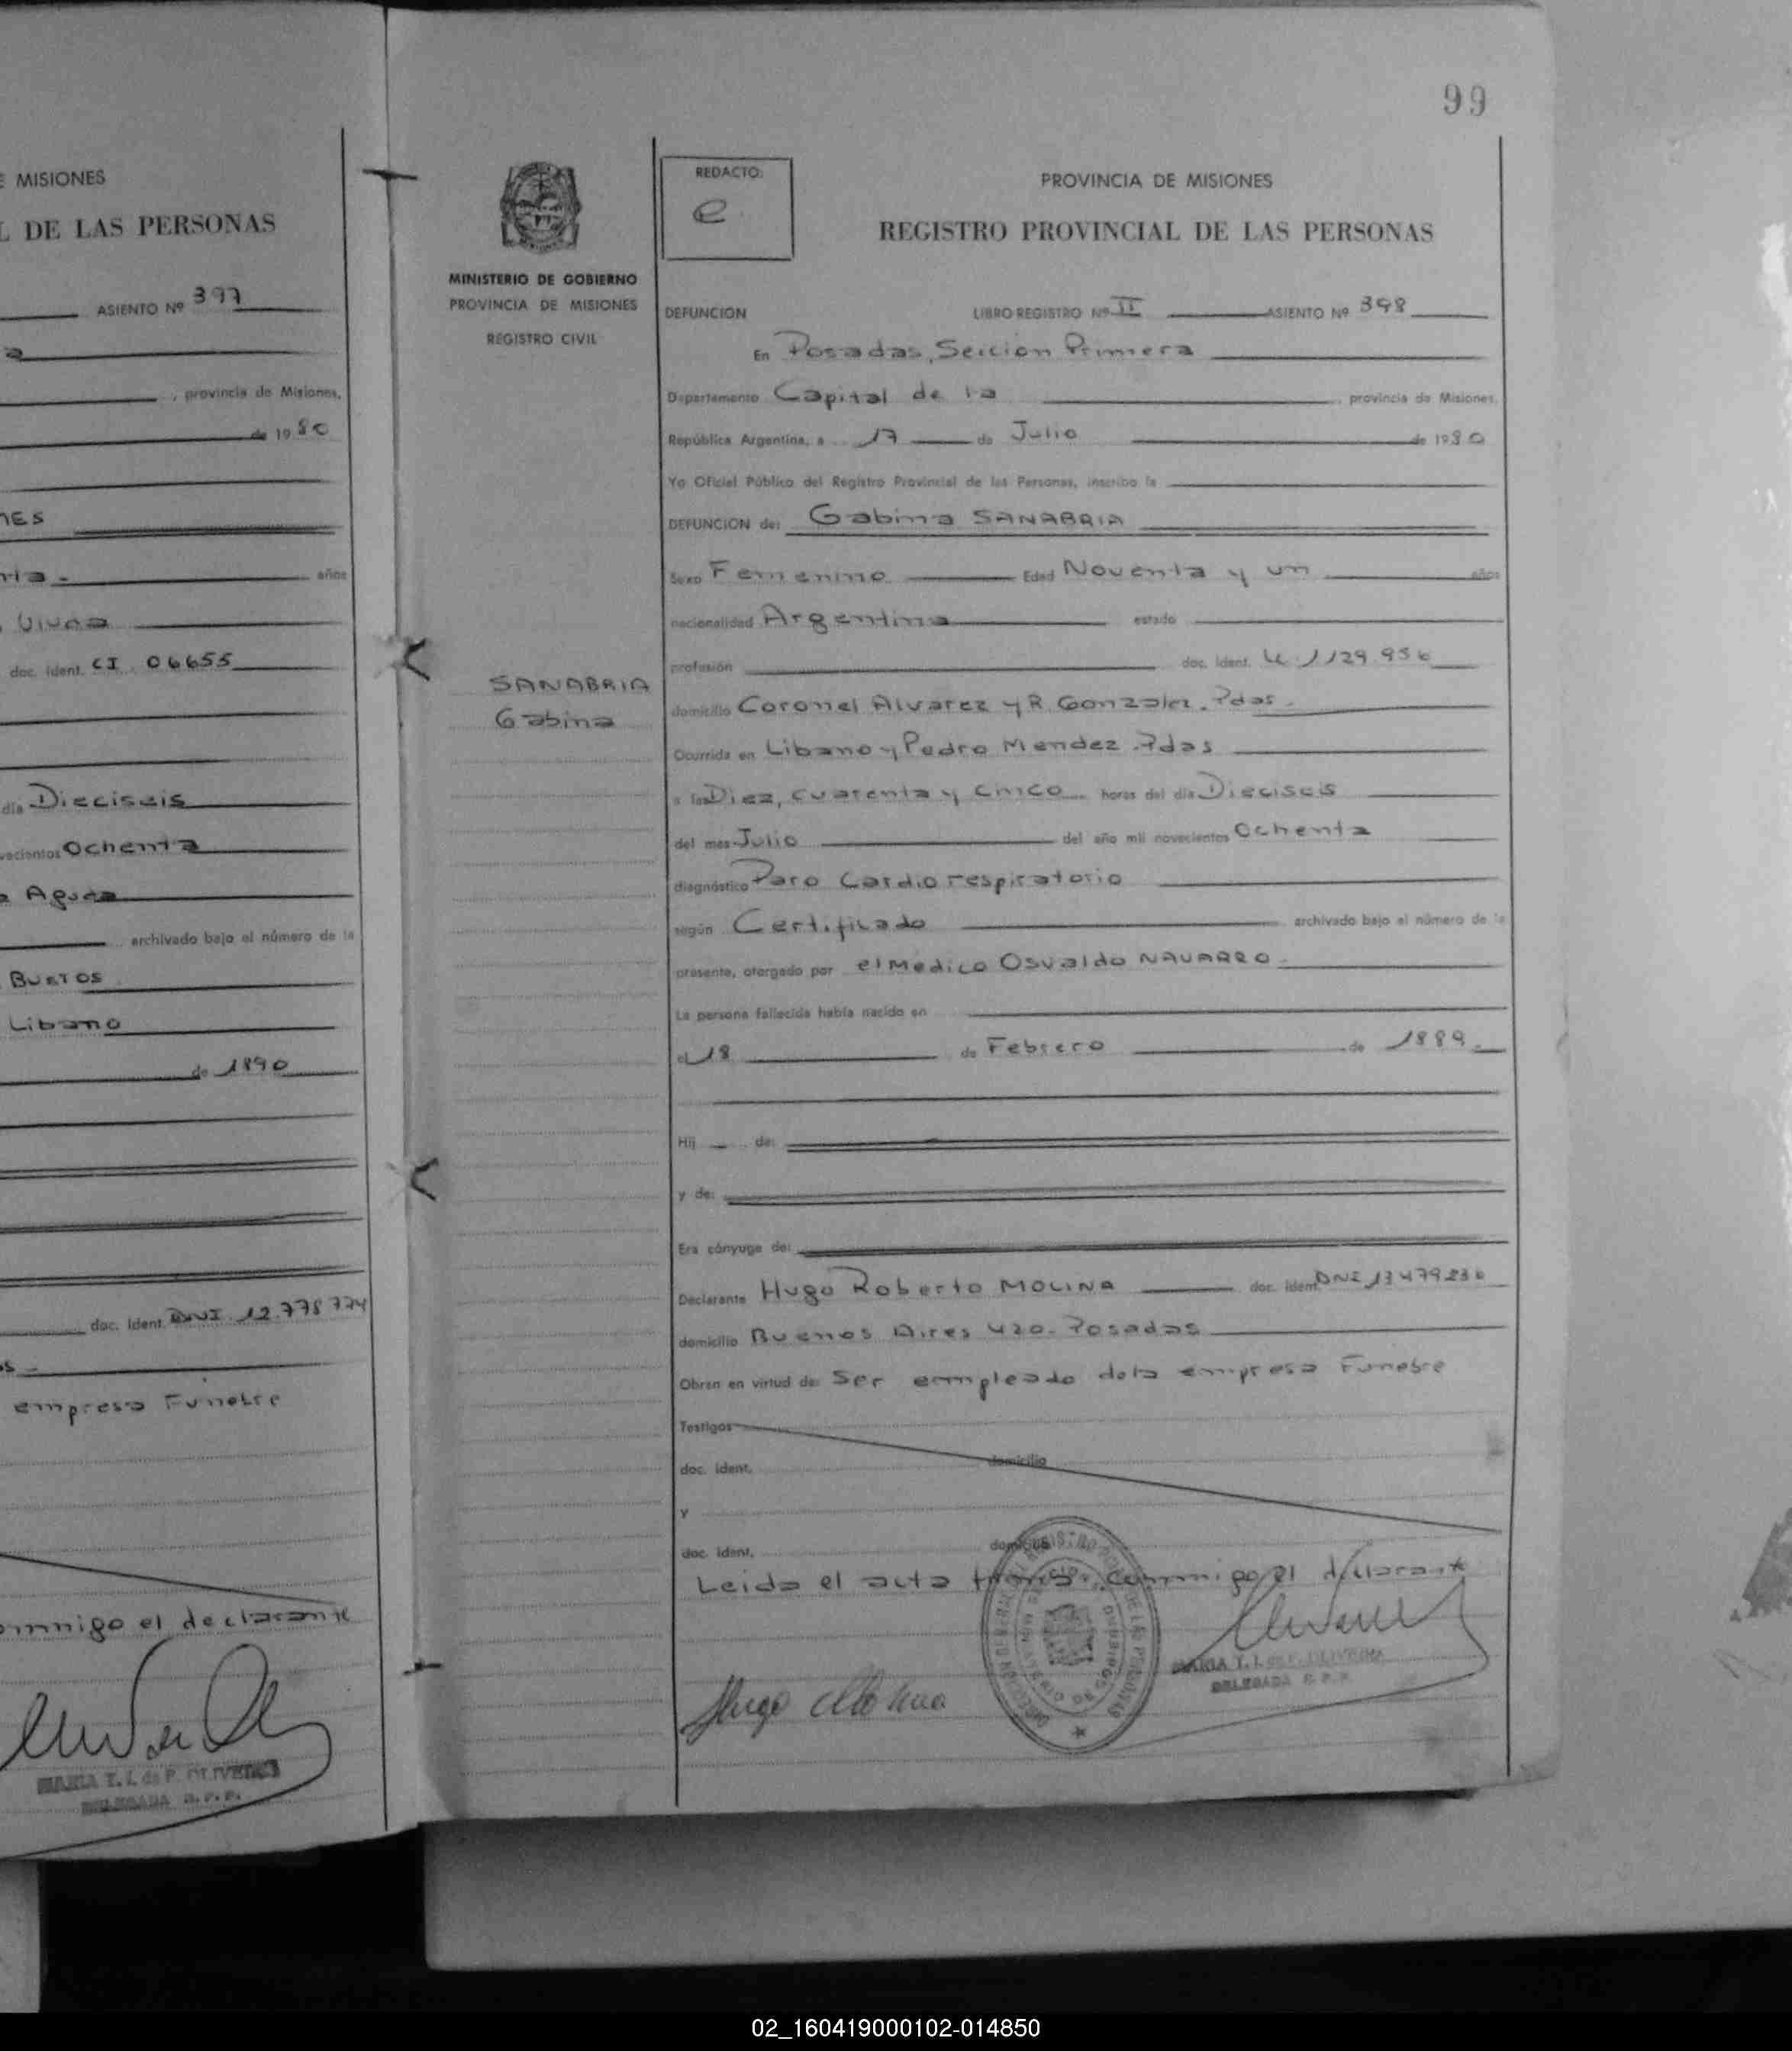 E MISIONES
L DE LAS PERSONAS
ASIENTO Nº 397
a
, provincia de Misiones,
de 1980
NES
nta. años
Viuda
doc. ident. CI 06655
día Dieciseis
vecientos Ochenta
a Aguda
archivado bajo el número de la
BUSTOS
Libano
de 1890
doc. ident. DNI 12.778774
os
empresa Funebre
onmigo el declarante
MARIA T. I. de P. OLIVEIRA
DELEGADA R. P. P.
99
MINISTERIO DE GOBIERNO
PROVINCIA DE MISIONES
REGISTRO CIVIL
SANABRIA
Gabina
REDACTO:
e
PROVINCIA DE MISIONES
REGISTRO PROVINCIAL DE LAS PERSONAS
DEFUNCION LIBRO REGISTRO Nº II ASIENTO Nº 398
En Posadas, Seccion Primera
Departamento Capital de la provincia de Misiones,
República Argentina, a 17 de Julio de 1980
Yo Oficial Público del Registro Provincial de las Personas, inscribo la
DEFUNCION de: Gabina SANABRIA
Sexo Femenino Edad Noventa y un años
nacionalidad Argentina estado
profesión doc. ident. LC. 1129.956
domicilio Coronel Alvarez y R. Gonzalez. Pdas.
Ocurrida en Libano y Pedro Mendez. Pdas
a las Diez, cuarenta y Cinco horas del día Dieciseis
del mes Julio del año mil novecientos Ochenta
diagnóstico Paro Cardiorespiratorio
según Certificado archivado bajo el número de la
presente, otorgado por el Medico Osvaldo NAVARRO
La persona fallecida había nacido en
el 18 de Febrero de 1889.
Hij de:
y de:
Era cónyuge de:
Declarante Hugo Roberto MOLINA doc. ident. DNI 13479236
domicilio Buenos Aires 420. Posadas
Obran en virtud de Ser empleado dela empresa Funebre
Testigos
doc. ident. domicilio
y
doc. ident. domicilio
Leida el acta conmigo el declarante
MARIA T. I. de P. OLIVEIRA
DELEGADA R. P. P.
Hugo Molina
02_160419000102-014850